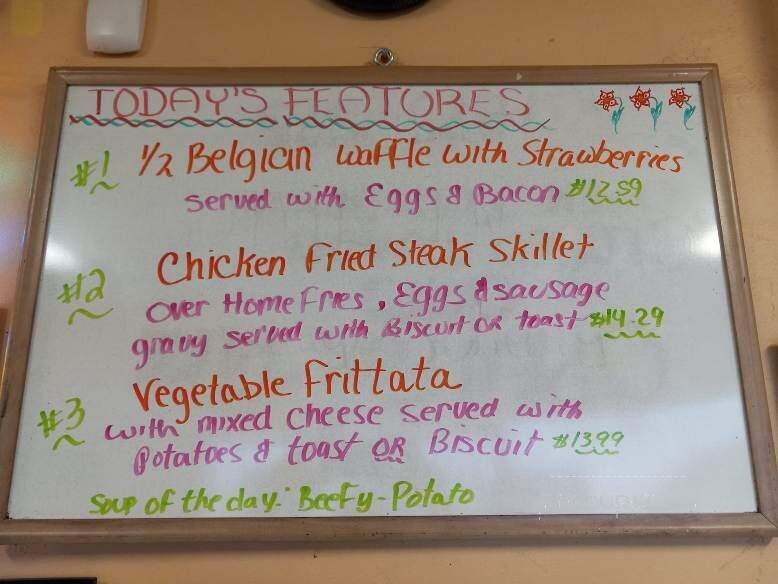 TODAY'S FEATURES
#1 1/2 Belgian waffle with Strawberries
served with Eggs & Bacon $12.59
#2 Chicken Fried Steak Skillet
over Home Fries, Eggs & sausage
gravy served with Biscuit OR toast $14.29
#3 Vegetable Frittata
with mixed cheese served with
Potatoes & toast OR Biscuit $13.99
Soup of the day: Beefy-Potato